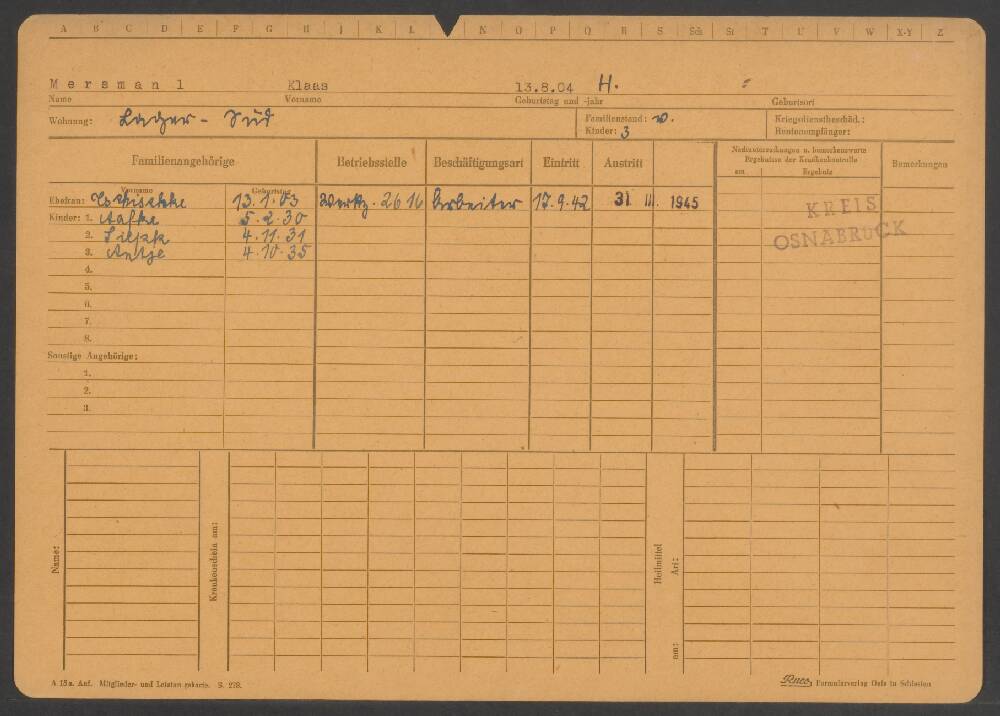 A B C D E F G H I J K L N O P Q R S Sch St T U V W X-Y Z
Mersman 1 Klaas 13.8.04 H.
Name Vorname Geburtstag und -jahr Geburtsort
Wohnung: Lager - Süd Familienstand: v. Kriegsdienstbeschäd.:
Kinder: 3 Rentenempfänger:
Familienangehörige Betriebsstelle Beschäftigungsart Eintritt Austritt Nachuntersuchungen u. bemerkenswerte Ergebnisse der Krankenkontrolle Bemerkungen
am Ergebnis
Vorname Geburtstag
Ehefrau: 13.1.03 Werkz. 2616 Arbeiter 17.9.42 31. III. 1945
Kinder: 1. Aafke 5.2.30 KREIS
2. 4.11.31 OSNABRUCK
3. Antje 4.10.35
4.
5.
6.
7.
8.
Sonstige Angehörige:
1.
2.
3.
Name:
Krankenschein am:
Heilmittel
Art:
am:
A 15a. Auf. Mitglieder- und Leistungskarte. S. 278.
Formularverlag Oels in Schlesien